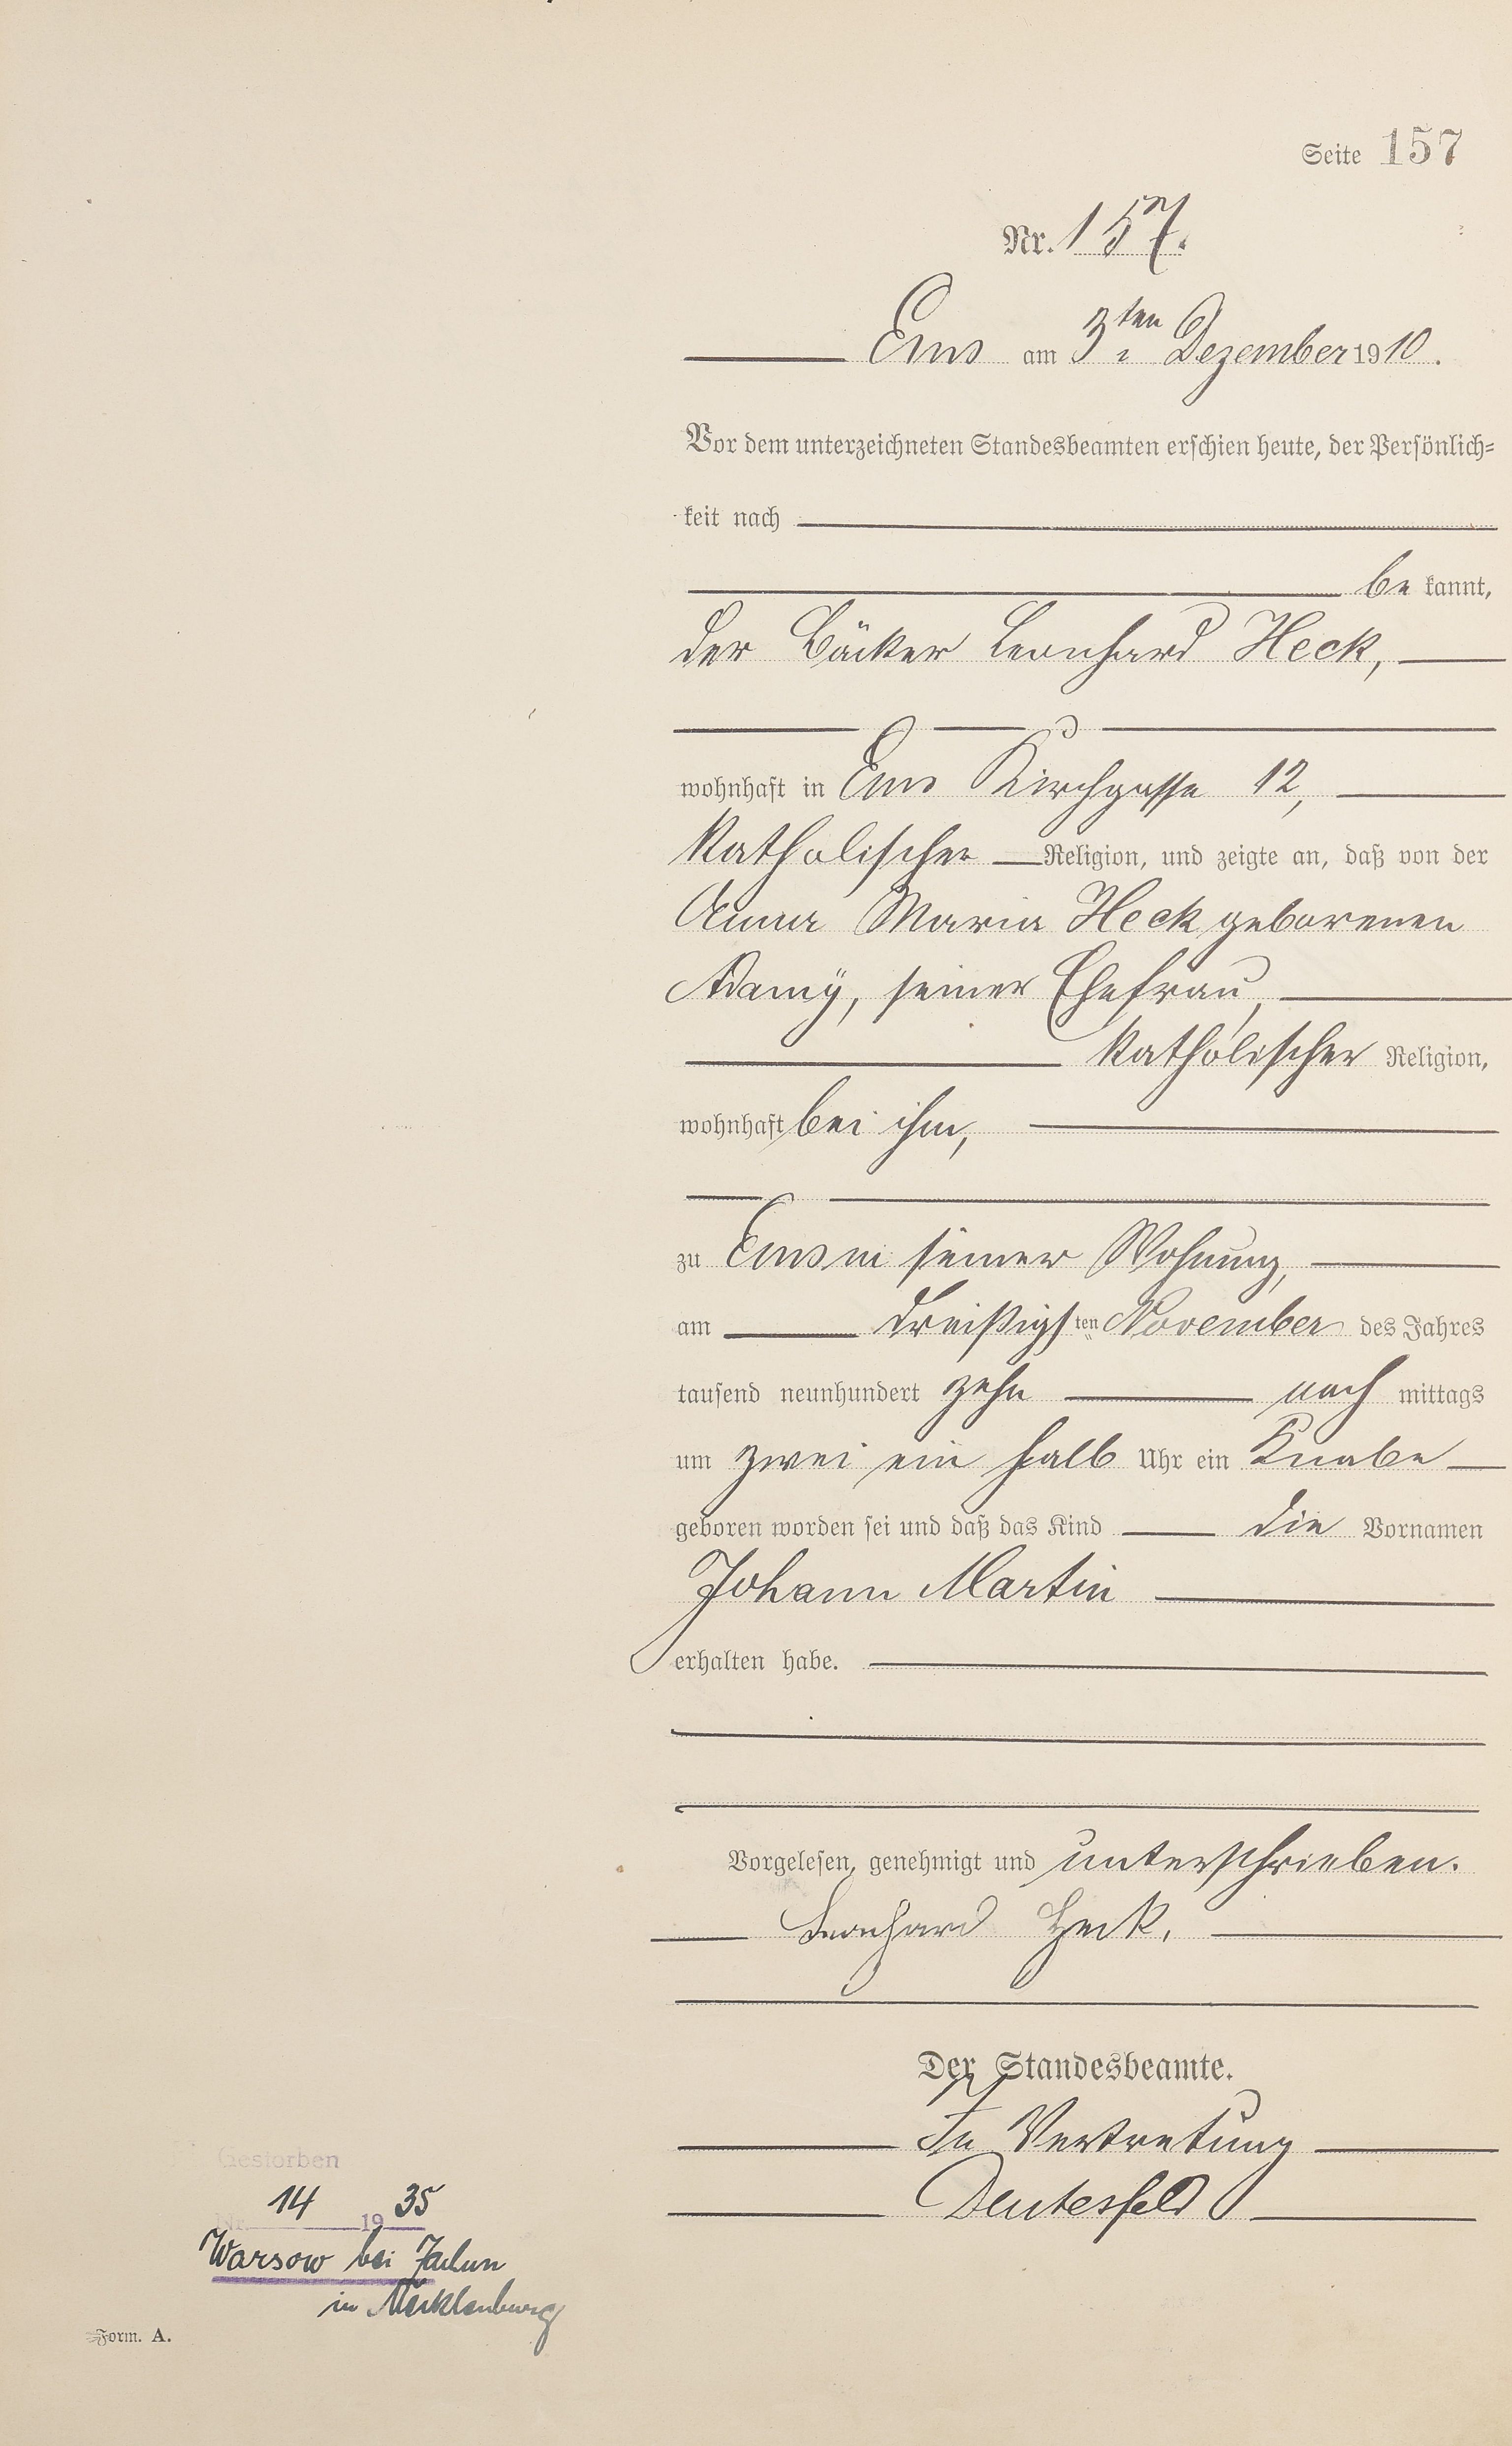 Seite 157
Nr. 157.
Ems am 3ten Dezember 1910.
Vor dem unterzeichneten Standesbeamten erschien heute, der Persönlich-
keit nach
be kannt,
der Bäcker Leonhard Heck,
wohnhaft in Ems Kirchgasse 12,
katholischer Religion, und zeigte an, daß von der
Anna Maria Heck geborenen
Adamy, seiner Ehefrau,
katholischer Religion,
wohnhaft bei ihm,
zu Ems in seiner Wohnung,
am dreißigsten November des Jahres
tausend neunhundert zehn nach mittags
um zwei ein halb Uhr ein Knabe
geboren worden sei und daß das Kind die Vornamen
Johann Martin
erhalten habe.
Vorgelesen, genehmigt und unterschrieben.
Leonhard Heck.
Der Standesbeamte.
In Vertretung
Deutesfeld
Gestorben
Nr. 14 1935
Warsow bei
in Mecklenburg
Form. A.